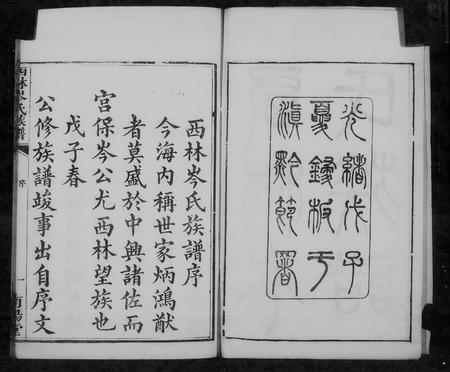 光緒戊子
夏鋟板于
滇黔節署
西林岑氏族譜序
今海內稱世家炳鴻猷
者莫盛於中興諸佐而
宮保岑公尤西林望族也
戊子春
公修族譜竣事出自序文
西林岑氏族譜
序
一